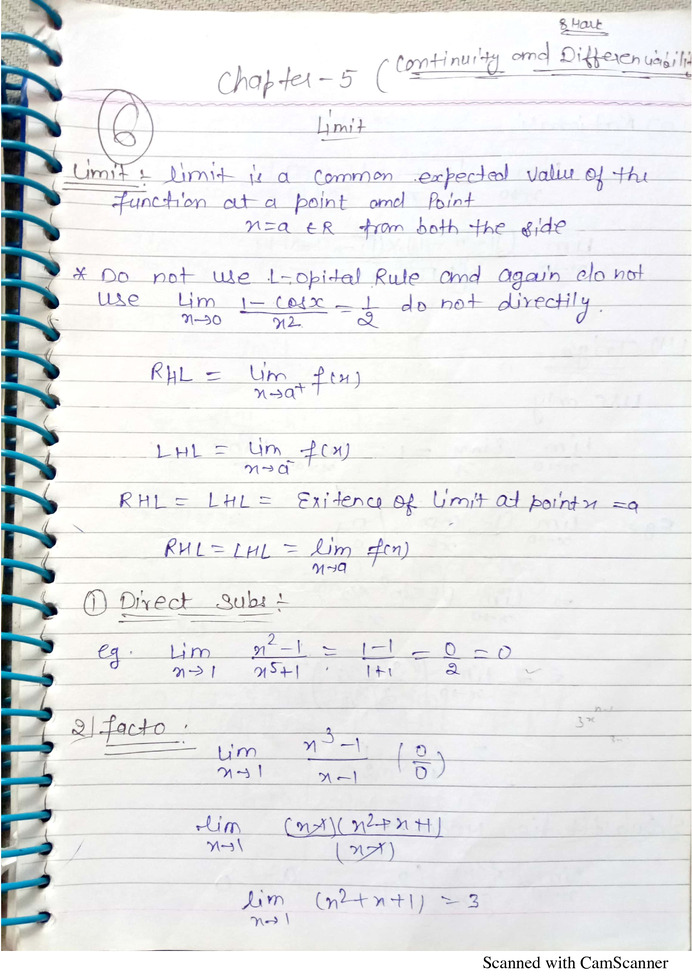 8 Mark
Chapter - 5 ( Continuity and Differenciabilit
6
Limit
Limit : limit is a common expected value of the
function at a point and Point
x=a ∈R from both the side
* Do not use L-opital Rule and again do not
use Lim x→0 1-cosx/x2 = 1/2 do not directily.
RHL = Lim x→a⁺ f(x)
LHL = Lim x→a⁻ f(x)
RHL = LHL = Exitence of limit at point x = a
RHL = LHL = lim x→a f(x)
① Direct Subs :-
eg. Lim x→1 x²-1/x⁵+1 = 1-1/1+1 = 0/2 = 0
2) facto :
Lim x→1 x³-1/x-1 (0/0)
lim x→1 (x-1)(x²+x+1)/(x-1)
lim x→1 (x²+x+1) = 3
Scanned with CamScanner